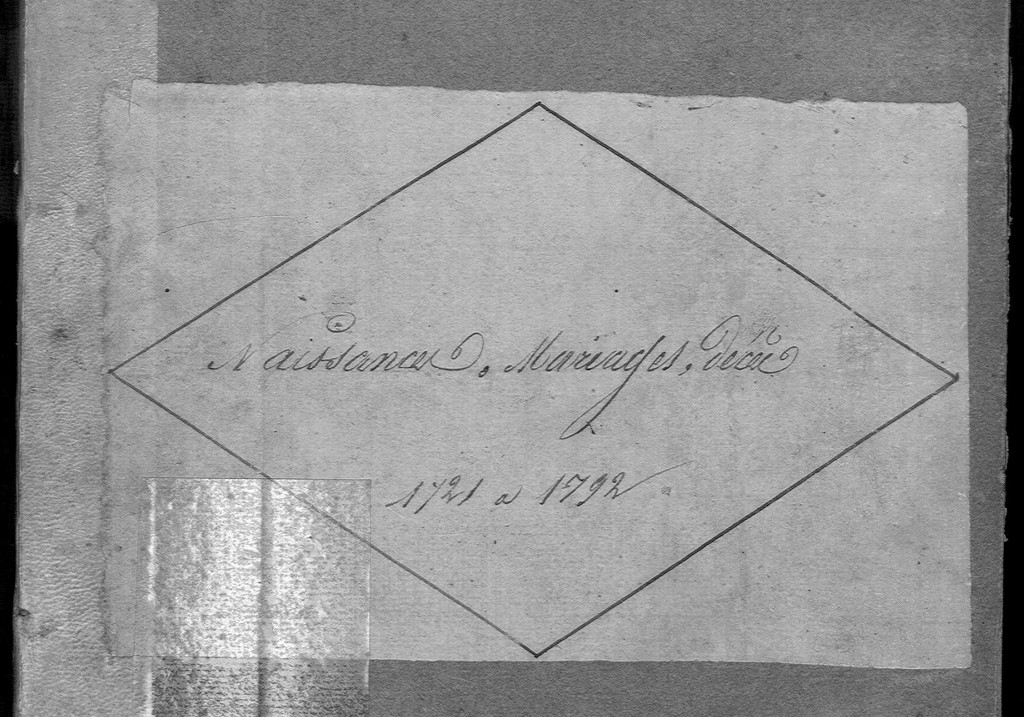 Naissances, Mariages, décès
1721 a 1792